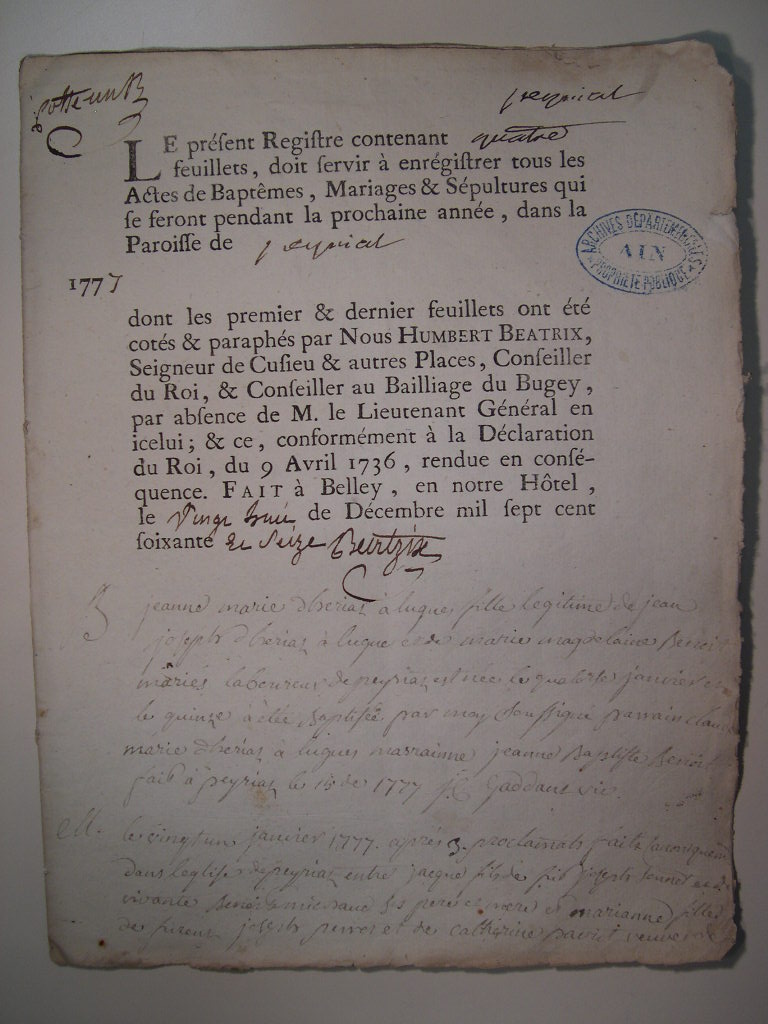 Cotte un B
peyriat
LE préſent Regiſtre contenant quatre
feuillets, doit ſervir à enrégiſtrer tous les
Actes de Baptêmes, Mariages & Sépultures qui
ſe feront pendant la prochaine année, dans la
Paroiſſe de peyriat
ARCHIVES DÉPARTEMENTALES
AIN
PROPRIÉTÉ PUBLIQUE
1777
dont les premier & dernier feuillets ont été
cotés & paraphés par Nous HUMBERT BEATRIX,
Seigneur de Cuſieu & autres Places, Conſeiller
du Roi, & Conſeiller au Bailliage du Bugey,
par abſence de M. le Lieutenant Général en
icelui; & ce, conformément à la Déclaration
du Roi, du 9 Avril 1736, rendue en conſé-
quence. FAIT à Belley, en notre Hôtel,
le Vingt huit de Décembre mil ſept cent
ſoixante et Seize Beatrix
B jeanne marie dheriaz à luques fille legitime de jean
joseph dheriaz à luque et de marie magdelaine Benoit
mariés laboureur de peyriaz est née le quatorze janvier et
le quinze à etté Baptisée par moy soussigné parrain claude
marie dheriaz à luques marrainne jeanne Baptiste Benoit
fait à peyriaz le 15 de 1777 Gaddant vic.
M. le vingt un janvier 1777 après 3 proclamats faits canoniquem
dans leglise de peyriaz entre jacque fils de fût joseph
vivante ses pere et mere et marianne fille
de joseph perret et de catherine veuve de